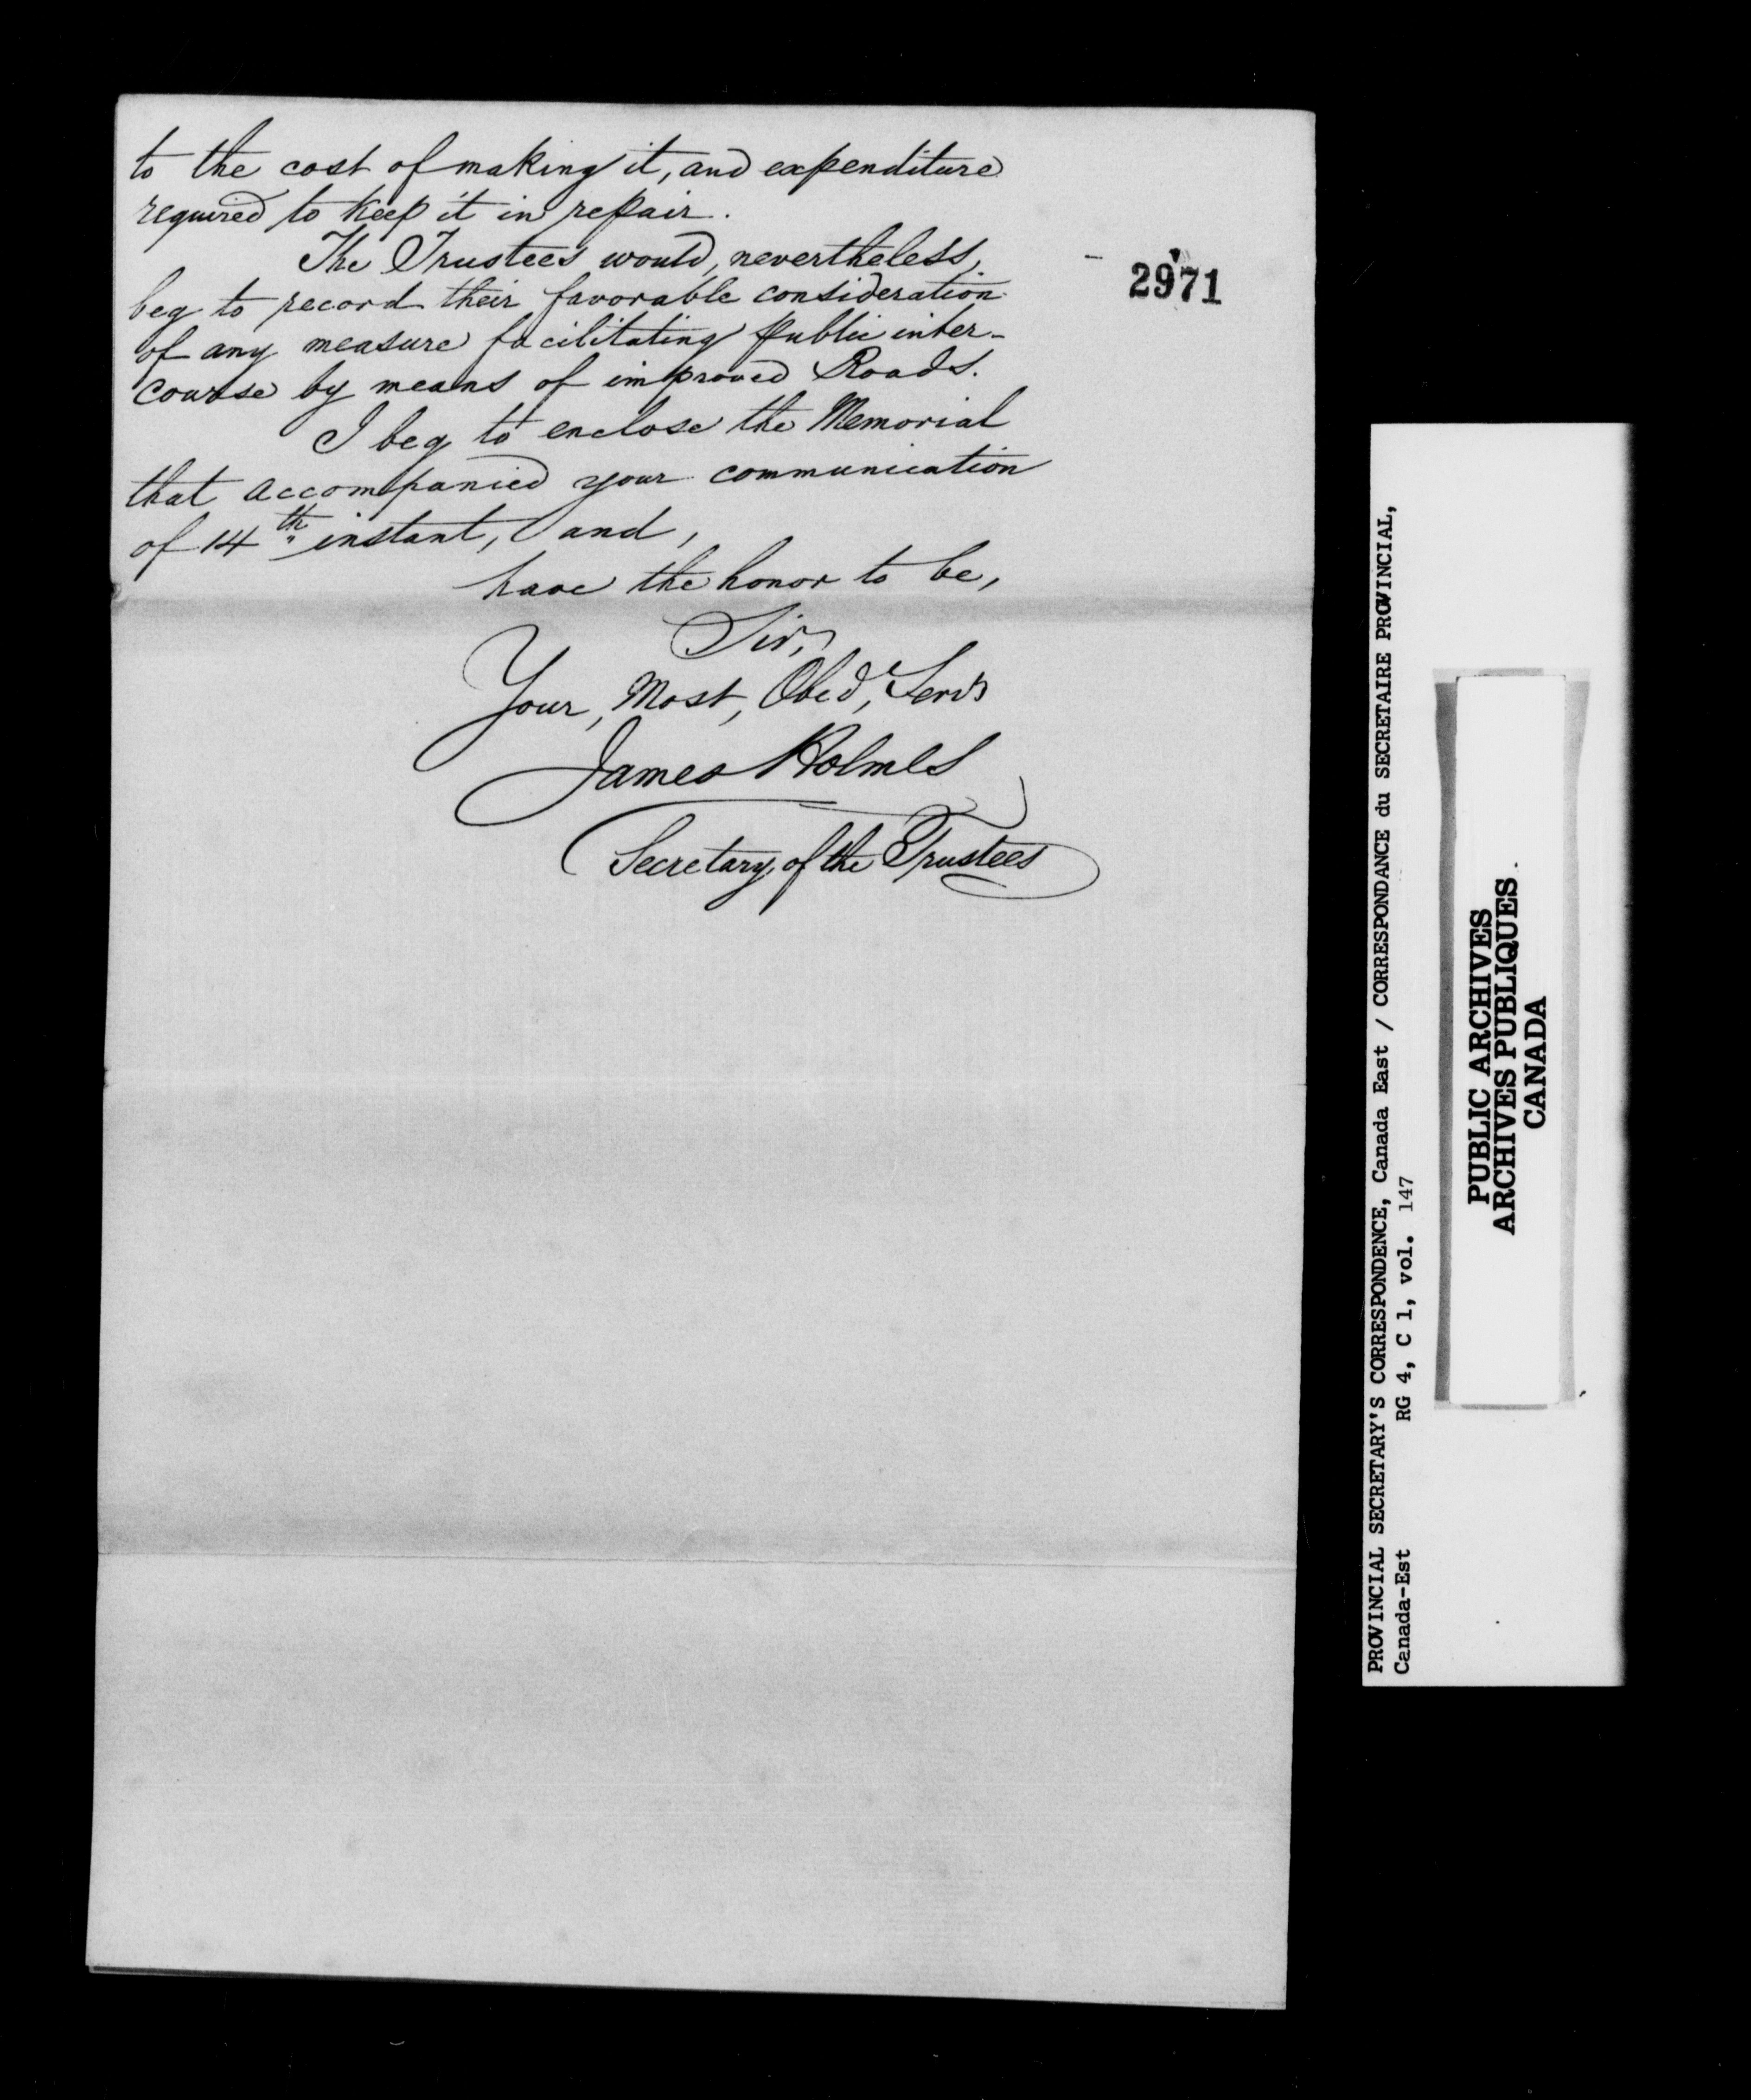 to the cost of making it, and expenditure
required to keep it in repair.
The Trustees would, nevertheless,
beg to record their favorable consideration
of any measure facilitating public inter-
course by means of improved Roads.
I beg to enclose the Memorial
that accompanied your communication
of 14th instant, and,
have the honor to be,
Sir,
Your, Most, Obed, Servt
James Holmes
Secretary of the Trustees
2971
PROVINCIAL SECRETARY'S CORRESPONDENCE, Canada East / CORRESPONDANCE du SECRETAIRE PROVINCIAL,
Canada-Est RG 4, C 1, vol. 147
PUBLIC ARCHIVES
ARCHIVES PUBLIQUES
CANADA